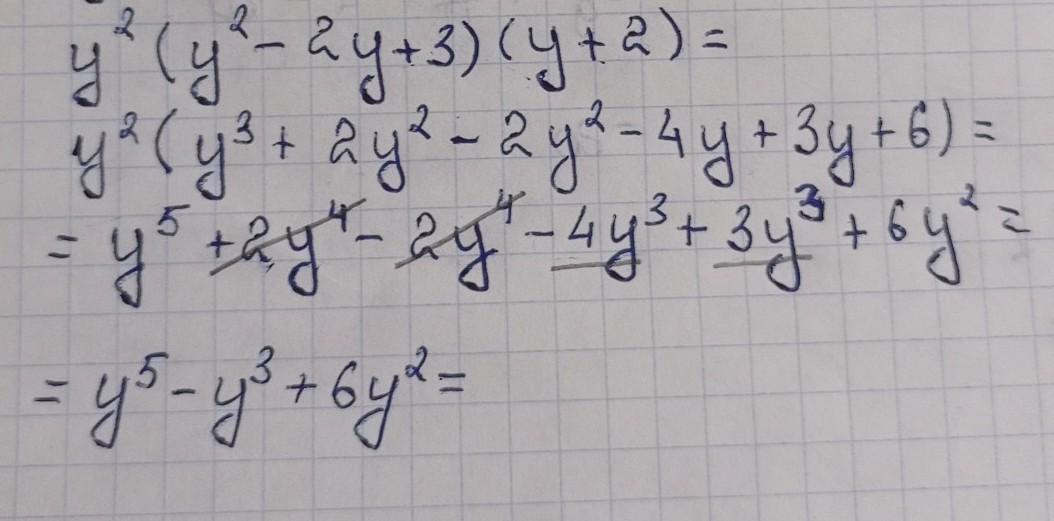 y²(y² - 2y + 3)(y + 2) =
y²(y³ + 2y² - 2y² - 4y + 3y + 6) =
= y⁵ + 2y⁴ - 2y⁴ - 4y³ + 3y³ + 6y² =
= y⁵ - y³ + 6y² =